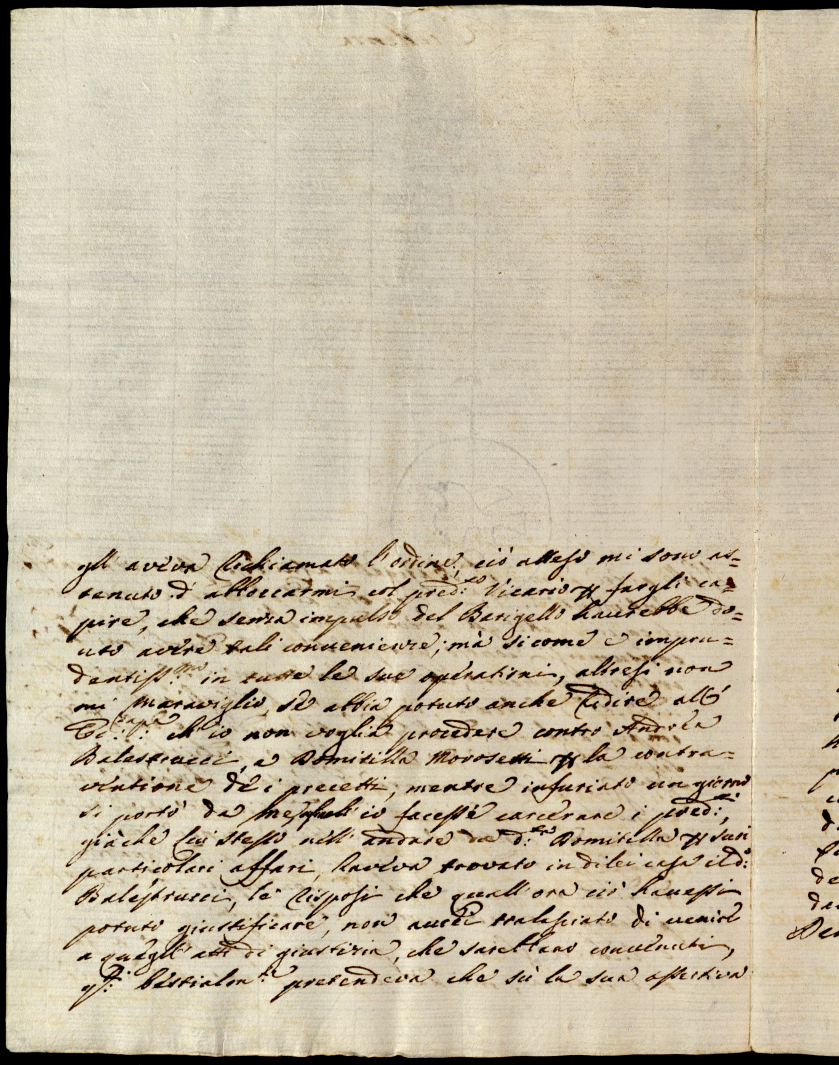 gl' aveva richiamato l'ordine, ciò atteso mi sono as=
tenuto d'abboccarmi col pred.to Vicario p fargli ca=
pire, che senza impulso del Barigello haverebbe do=
uto avere tali convenienze; mà sicome è impru=
dentiss.mo in tutte le sue operationi, altresì non
mi maraviglio, se abbia potuto anche ridire all'
ch'io non voglia procedere contro Andrea
Balestrucci, e Domitilla Morosetti p la contra=
ventione de i precetti, mentre infuriato un giorno
si portò da me io facesse carcerare i pred.ti,
giàche lui stesso nell'andare da d.ta Domitilla p suoi
particolari affari, l'aveva trovato in di lei casa il d.o
Balestrucci, le risposi che quall'ora ciò havessi
potuto giustificare, non avrei tralasciato di venire
a quegl'atti di giustizia, che sarebbano convenuti,
bestialm.te pretendeva che sù la sua assertiva